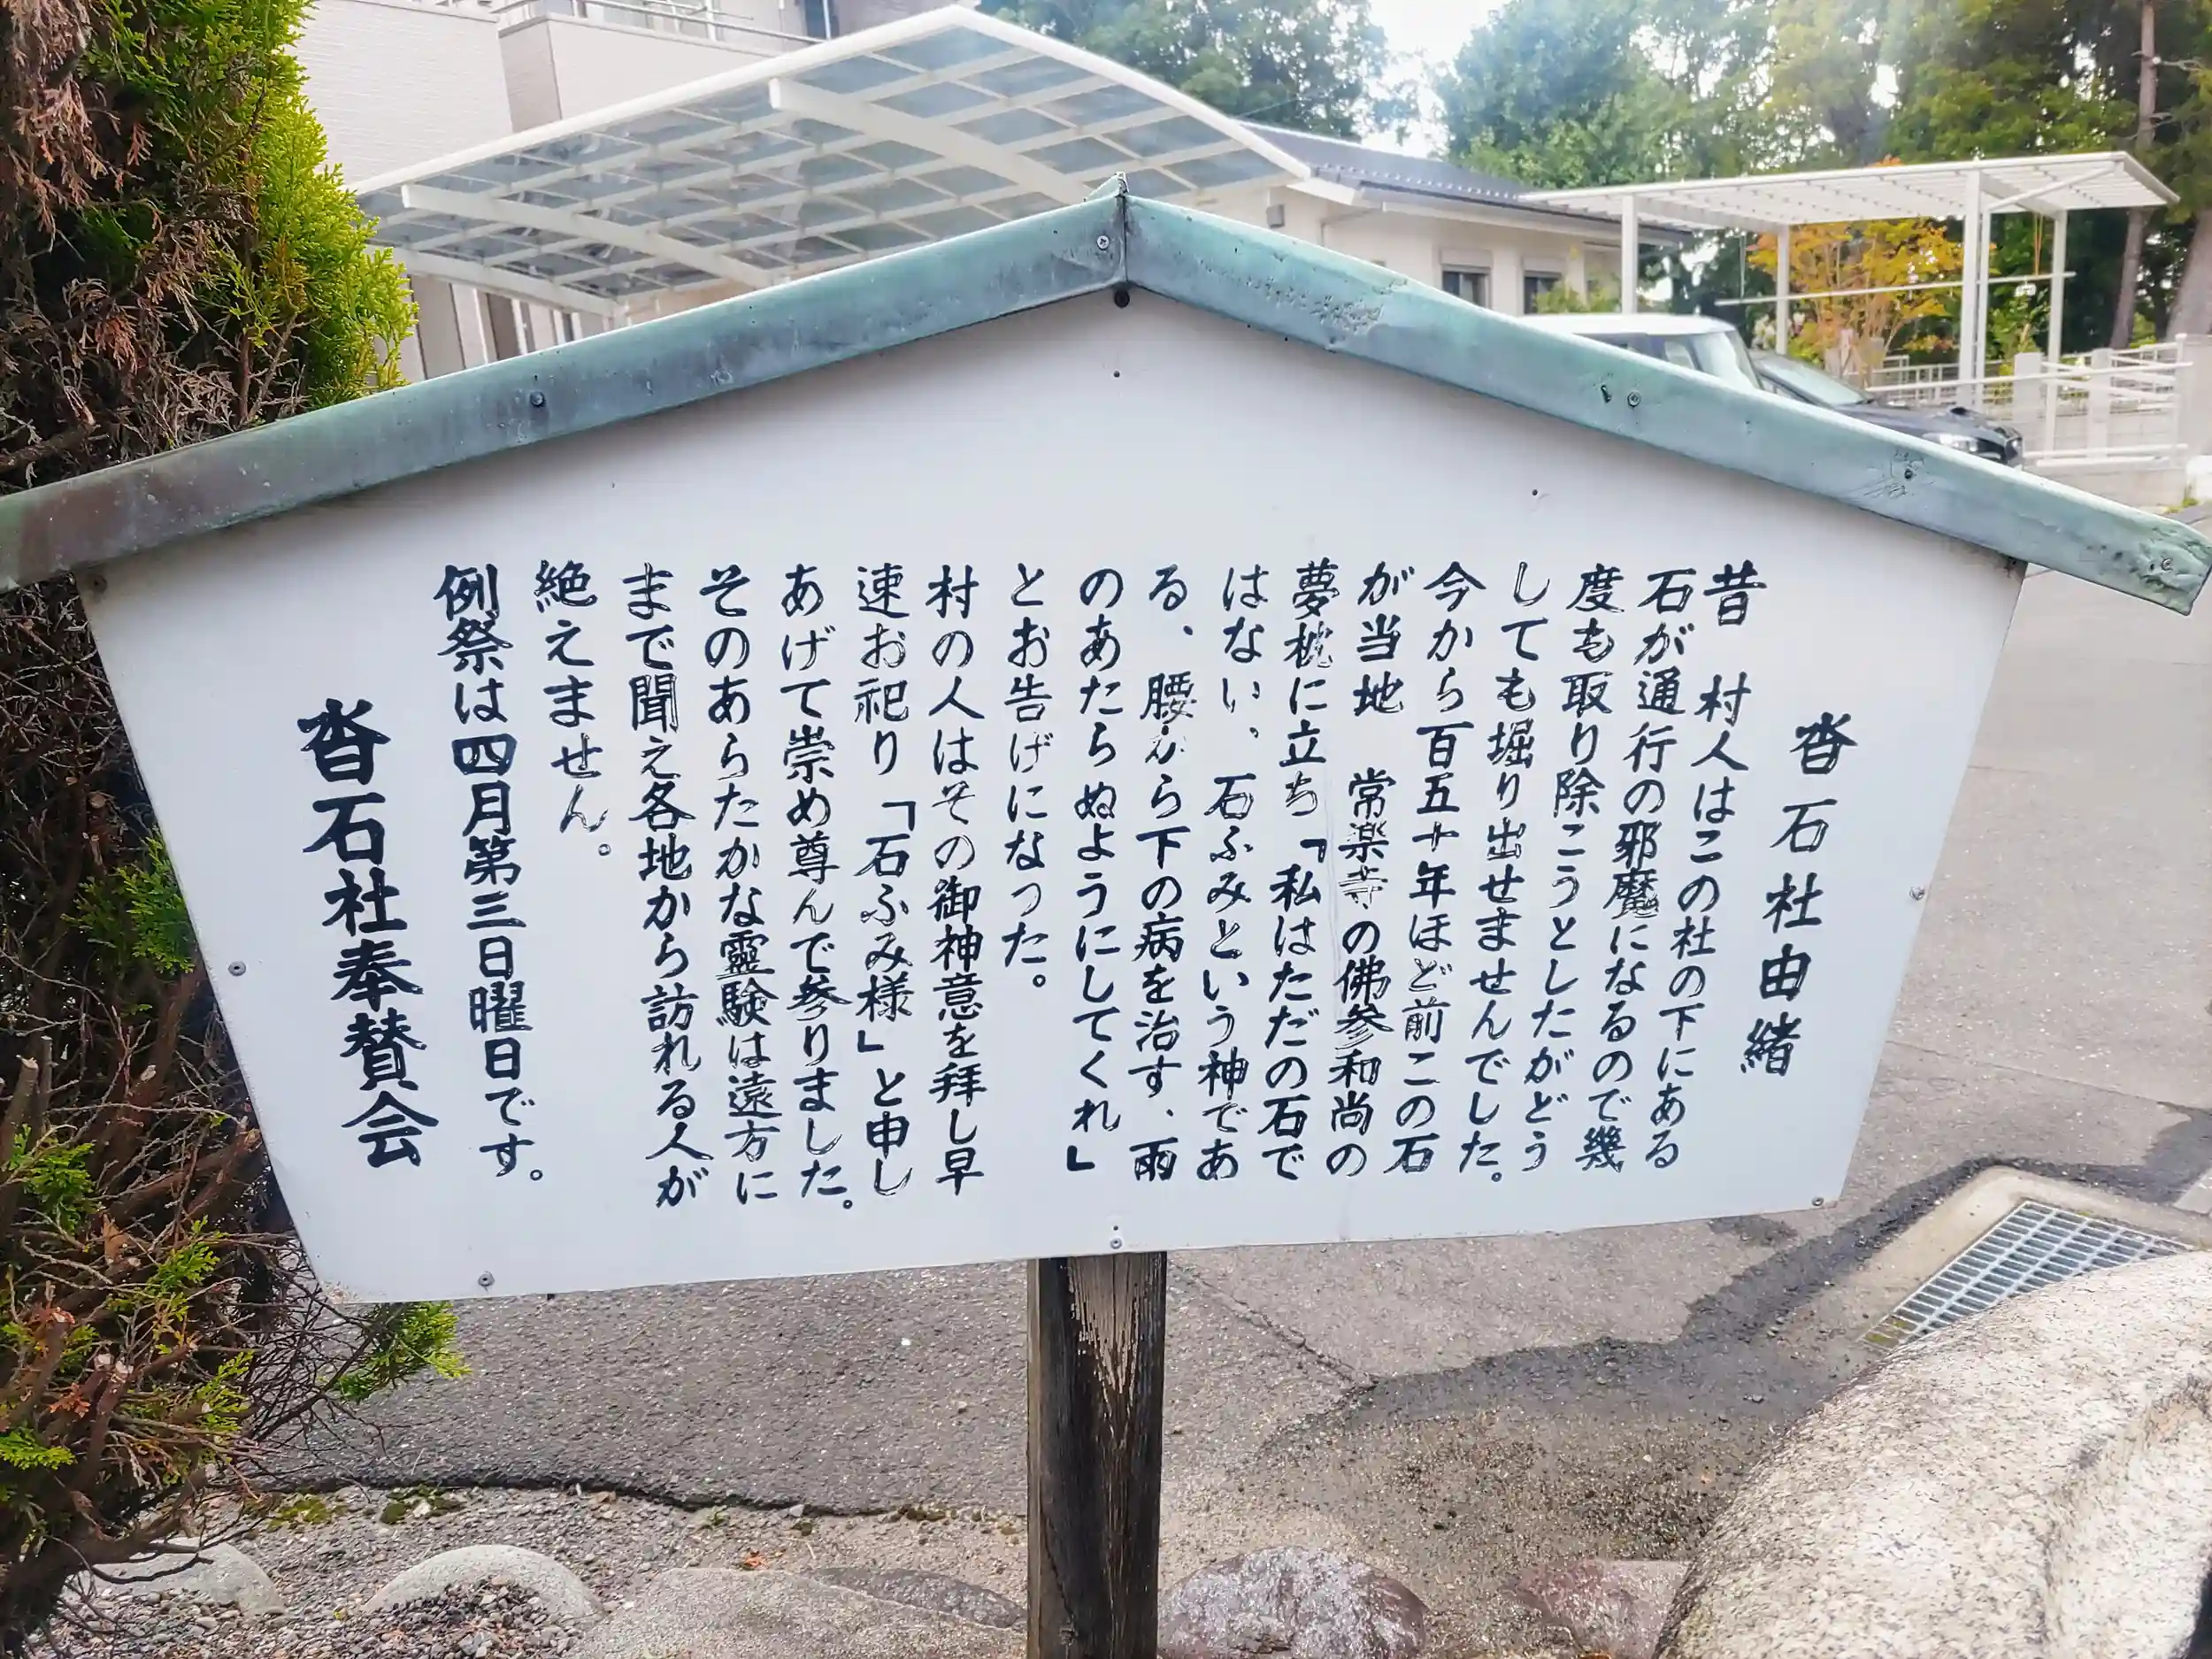 沓石社由緒
昔　村人はこの社の下にある
石が通行の邪魔になるので幾
度も取り除こうとしたがどう
しても堀り出せませんでした。
今から百五十年ほど前この石
が当地　常楽寺の佛参和尚の
夢枕に立ち「私はただの石で
はない、石ふみという神であ
る、腰から下の病を治す、雨
のあたらぬようにしてくれ」
とお告げになった。
村の人はその御神意を拜し早
速お祀り「石ふみ様」と申し
あげて崇め尊んで参りました。
そのあらたかな靈験は遠方に
まで聞え各地から訪れる人が
絶えません。
例祭は四月第三日曜日です。
沓石社奉賛会